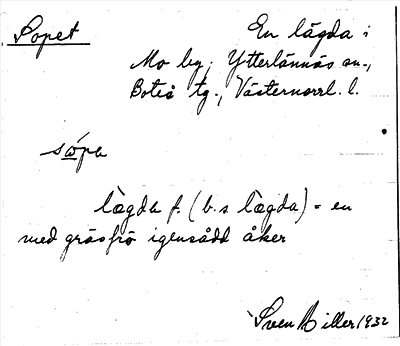 Sopet
En lägda i
Mo by, Ytterlännäs sn.,
Boteå tg., Västernorrl. l.
sópa
lægda f. (b.s lægda) = en
med gräsfrö igensådd åker
Sven Hiller 1932